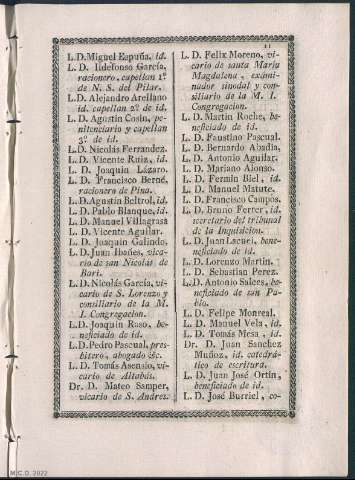 11
L. D. Miguel Espuña, id.
L. D. Ildefonso García,
racionero, capellan 1.º
de N. S. del Pilar.
L. D. Alejandro Arellano
id. capellan 2.º de id.
L. D. Agustin Cosin, pe-
nitenciario y capellan
3.º de id.
L. D. Nicolás Ferrandez.
L. D. Vicente Ruiz, id.
L. D. Joaquin Lázaro.
L. D. Francisco Berné,
racionero de Pina.
L. D. Agustin Beltrol, id.
L. D. Pablo Blanque, id.
L. D. Manuel Villagrasa
L. D. Vicente Aguilar.
L. D. Joaquin Galindo.
L. D. Juan Ibañes, vica-
rio de san Nicolas de
Bari.
L. D. Nicolás García, vi-
cario de S. Lorenzo y
consiliario de la M.
I. Congregacion.
L. D. Joaquin Raso, be-
neficiado de id.
L. D. Pedro Pascual, pres-
bitero, abogado &c.
L. D. Tomás Asensio, vi-
cario de Altabás.
Dr. D. Mateo Samper,
vicario de S. Andrez.
L. D. Felix Moreno, vi-
cario de santa María
Magdalena, exâmi-
nador sinodal y con-
siliario de la M. I.
Congregacion.
L. D. Martin Roche, be-
neficiado de id.
L. D. Faustino Pascual.
L. D. Bernardo Abadia.
L. D. Antonio Aguilar.
L. D. Mariano Alonso.
L. D. Fermin Blel, id.
L. D. Manuel Matute.
L. D. Francisco Campos.
L. D. Bruno Ferrer, id.
secretario del tribunal
de la Inquisicion.
L. D. Juan Lacuei, bene-
neficiado de id.
L. D. Lorenzo Martin.
L. D. Sebastian Perez.
L. D. Antonio Salces, be-
neficiado de san Pa-
blo.
L. D. Felipe Monreal.
L. D. Manuel Vela, id.
L. D. Tomás Mesa, id.
Dr. D. Juan Sanchez
Muñoz, id. catedrá-
tico de escritura.
L. D. Juan José Ortin,
beneficiado de id.
L. D. José Burriel, co-
M.C.D. 2022